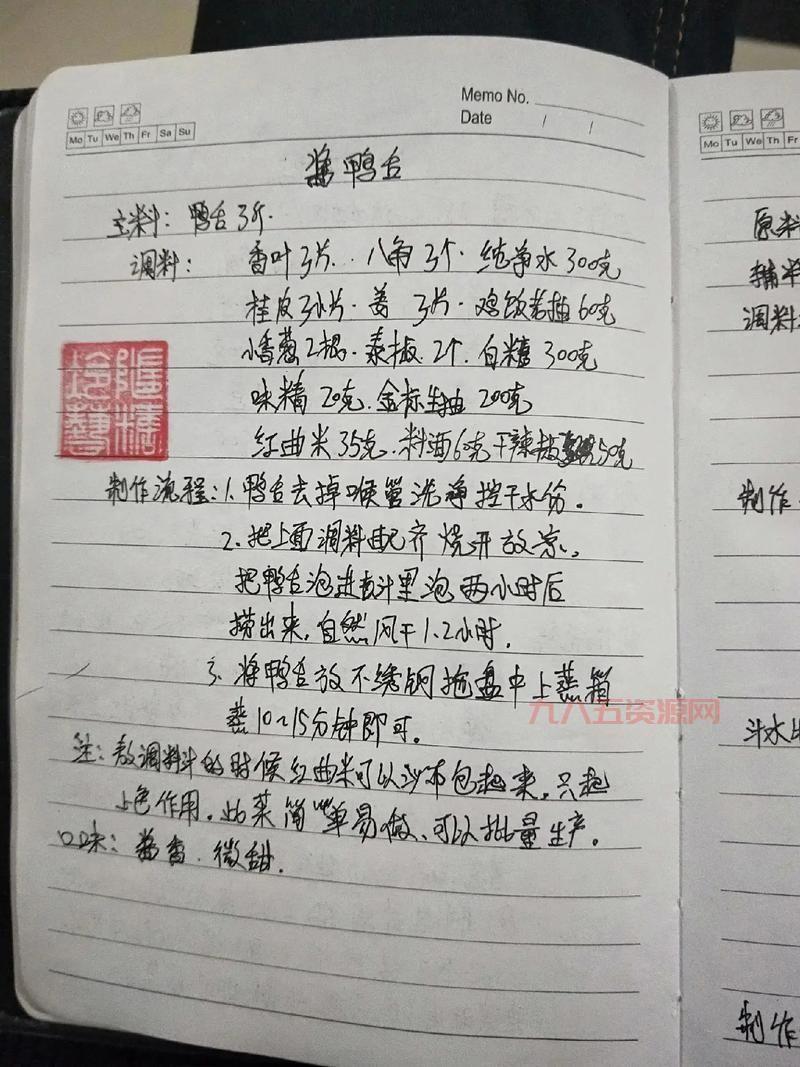 Memo No.
Date / /
Mo Tu We Th Fr Sa Su
酱鸭舌
主料: 鸭舌3斤.
调料: 香叶3片. 八角3个. 纯净水300克
桂皮3小片. 姜 3片. 鸡饭老抽60克
小香葱2根. 泰椒2个. 白糖300克
味精20克. 金标生抽200克
红曲米35克. 料酒60克 干辣椒 50克
制作流程: 1. 鸭舌去掉喉管洗净控干水份.
2. 把上面调料配齐 烧开放凉.
把鸭舌泡进去汁里泡两小时后
捞出来, 自然风干1.2小时.
3. 将鸭舌放不绣钢拖盘中上蒸箱
蒸10~15分钟即可.
九八五资源网
注: 敖调料汁的时候红曲米可以沙布包起来. 只起
上色作用. 此菜简单易做、可以批量生产.
口味: 酱香. 微甜.
Mo Tu We Th F
原料
辅料
调料
制作
斗水
制作